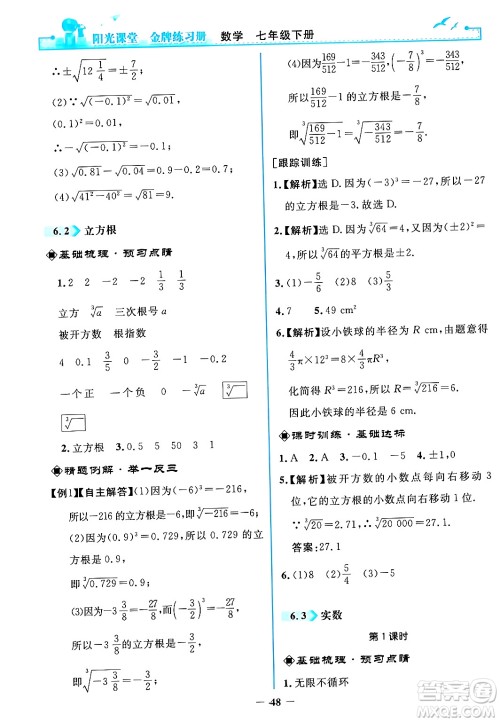 阳光课堂 金牌练习册 数学 七年级下册
∴±√(12 1/4)=±7/2.
(2)∵√(0.1)²=0.1,
(0.1)²=0.01,
∴-√0.01=-0.1.
(3)√0.81-√0.04=0.9-0.2=0.7.
(4)√(41²-40²)=√81=9.
6.2 立方根
基础梳理·预习点睛
1. 2 2 -2 -2 1/3 1/3
立方 ³√a 三次根号a
被开方数 根指数
4 0 0.1 0 -1/3
一个正 一个负 0 -³√
³√
2. 立方根 3. 0.5 5 50 3 1
精题例解·举一反三
[例1][自主解答](1)∵(-6)³=-216,
所以-216的立方根是-6,
即³√-216=-6.
(2)因为0.9³=0.729,
所以0.729的立方根是0.9,
即³√0.729=0.9.
(3)因为-3 3/8=-27/8,而(-3/2)³=-27/8,
所以-3 3/8的立方根是-3/2,
即³√(-3 3/8)=-3/2.
(4)因为169/512-1=-343/512,而(-7/8)³=-343/512,
所以169/512-1的立方根是-7/8,
即³√(169/512-1)=³√(-343/512)=-7/8.
[跟踪训练]
1.【解析】选D.因为(-3)³=-27,所以-27
的立方根是-3.
2.【解析】选D.因为³√64=4,4的平方根是
±2,所以³√64的平方根是±2.
3. (1)-5/6 (2)3/5 (3)-4
4. 7 5. 49 cm²
6.【解析】设小铁球的半径为R cm,由题意得
4/3π×12³=8×4/3πR³,
化简得R³=216,解得R=³√216=6.
因此小铁球的半径为6 cm.
课时训练·基础达标
1. A 2. A 3. -0.1 4. ±1,0
5.【解析】被开方数的小数点每向右移动3
位,它的立方根的小数点向右移动1位.
∵³√20=2.71,∴³√20 000=27.1.
答案:27.1
6. (1)8 (2)5/4 (3)5/4
6.3 实数
第1课时
基础梳理·预习点睛
1. 无限不循环
48